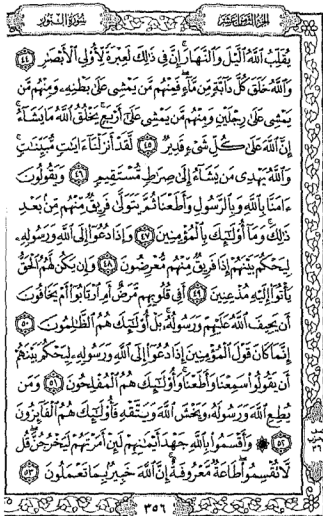 الجزء الثامن عشر سورة النور
يُقَلِّبُ ٱللَّهُ ٱلَّيْلَ وَٱلنَّهَارَ إِنَّ فِى ذَٰلِكَ لَعِبْرَةً لِّأُو۟لِى ٱلْأَبْصَٰرِ ٤٤
وَٱللَّهُ خَلَقَ كُلَّ دَآبَّةٍ مِّن مَّآءٍ فَمِنْهُم مَّن يَمْشِى عَلَىٰ بَطْنِهِۦ وَمِنْهُم مَّن
يَمْشِى عَلَىٰ رِجْلَيْنِ وَمِنْهُم مَّن يَمْشِى عَلَىٰٓ أَرْبَعٍ يَخْلُقُ ٱللَّهُ مَا يَشَآءُ
إِنَّ ٱللَّهَ عَلَىٰ كُلِّ شَىْءٍ قَدِيرٌ ٤٥ لَّقَدْ أَنزَلْنَآ ءَايَٰتٍ مُّبَيِّنَٰتٍ
وَٱللَّهُ يَهْدِى مَن يَشَآءُ إِلَىٰ صِرَٰطٍ مُّسْتَقِيمٍ ٤٦ وَيَقُولُونَ
ءَامَنَّا بِٱللَّهِ وَبِٱلرَّسُولِ وَأَطَعْنَا ثُمَّ يَتَوَلَّىٰ فَرِيقٌ مِّنْهُم مِّنۢ بَعْدِ
ذَٰلِكَ وَمَآ أُو۟لَٰٓئِكَ بِٱلْمُؤْمِنِينَ ٤٧ وَإِذَا دُعُوٓا۟ إِلَى ٱللَّهِ وَرَسُولِهِۦ
لِيَحْكُمَ بَيْنَهُمْ إِذَا فَرِيقٌ مِّنْهُم مُّعْرِضُونَ ٤٨ وَإِن يَكُن لَّهُمُ ٱلْحَقُّ
يَأْتُوٓا۟ إِلَيْهِ مُذْعِنِينَ ٤٩ أَفِى قُلُوبِهِم مَّرَضٌ أَمِ ٱرْتَابُوٓا۟ أَمْ يَخَافُونَ
أَن يَحِيفَ ٱللَّهُ عَلَيْهِمْ وَرَسُولُهُۥ بَلْ أُو۟لَٰٓئِكَ هُمُ ٱلظَّٰلِمُونَ ٥٠
إِنَّمَا كَانَ قَوْلَ ٱلْمُؤْمِنِينَ إِذَا دُعُوٓا۟ إِلَى ٱللَّهِ وَرَسُولِهِۦ لِيَحْكُمَ بَيْنَهُمْ
أَن يَقُولُوا۟ سَمِعْنَا وَأَطَعْنَا وَأُو۟لَٰٓئِكَ هُمُ ٱلْمُفْلِحُونَ ٥١ وَمَن
يُطِعِ ٱللَّهَ وَرَسُولَهُۥ وَيَخْشَ ٱللَّهَ وَيَتَّقْهِ فَأُو۟لَٰٓئِكَ هُمُ ٱلْفَآئِزُونَ
٥٢ ۞ وَأَقْسَمُوا۟ بِٱللَّهِ جَهْدَ أَيْمَٰنِهِمْ لَئِنْ أَمَرْتَهُمْ لَيَخْرُجُنَّ قُل
لَّا تُقْسِمُوا۟ طَاعَةٌ مَّعْرُوفَةٌ إِنَّ ٱللَّهَ خَبِيرٌۢ بِمَا تَعْمَلُونَ ٥٣
٣٥٦